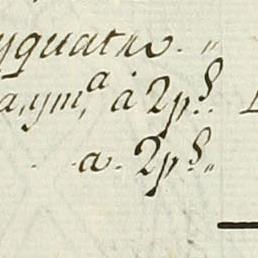 yquatro.
a,,ym,ᵃ à 2p.ˢ
a. 2p.ˢ